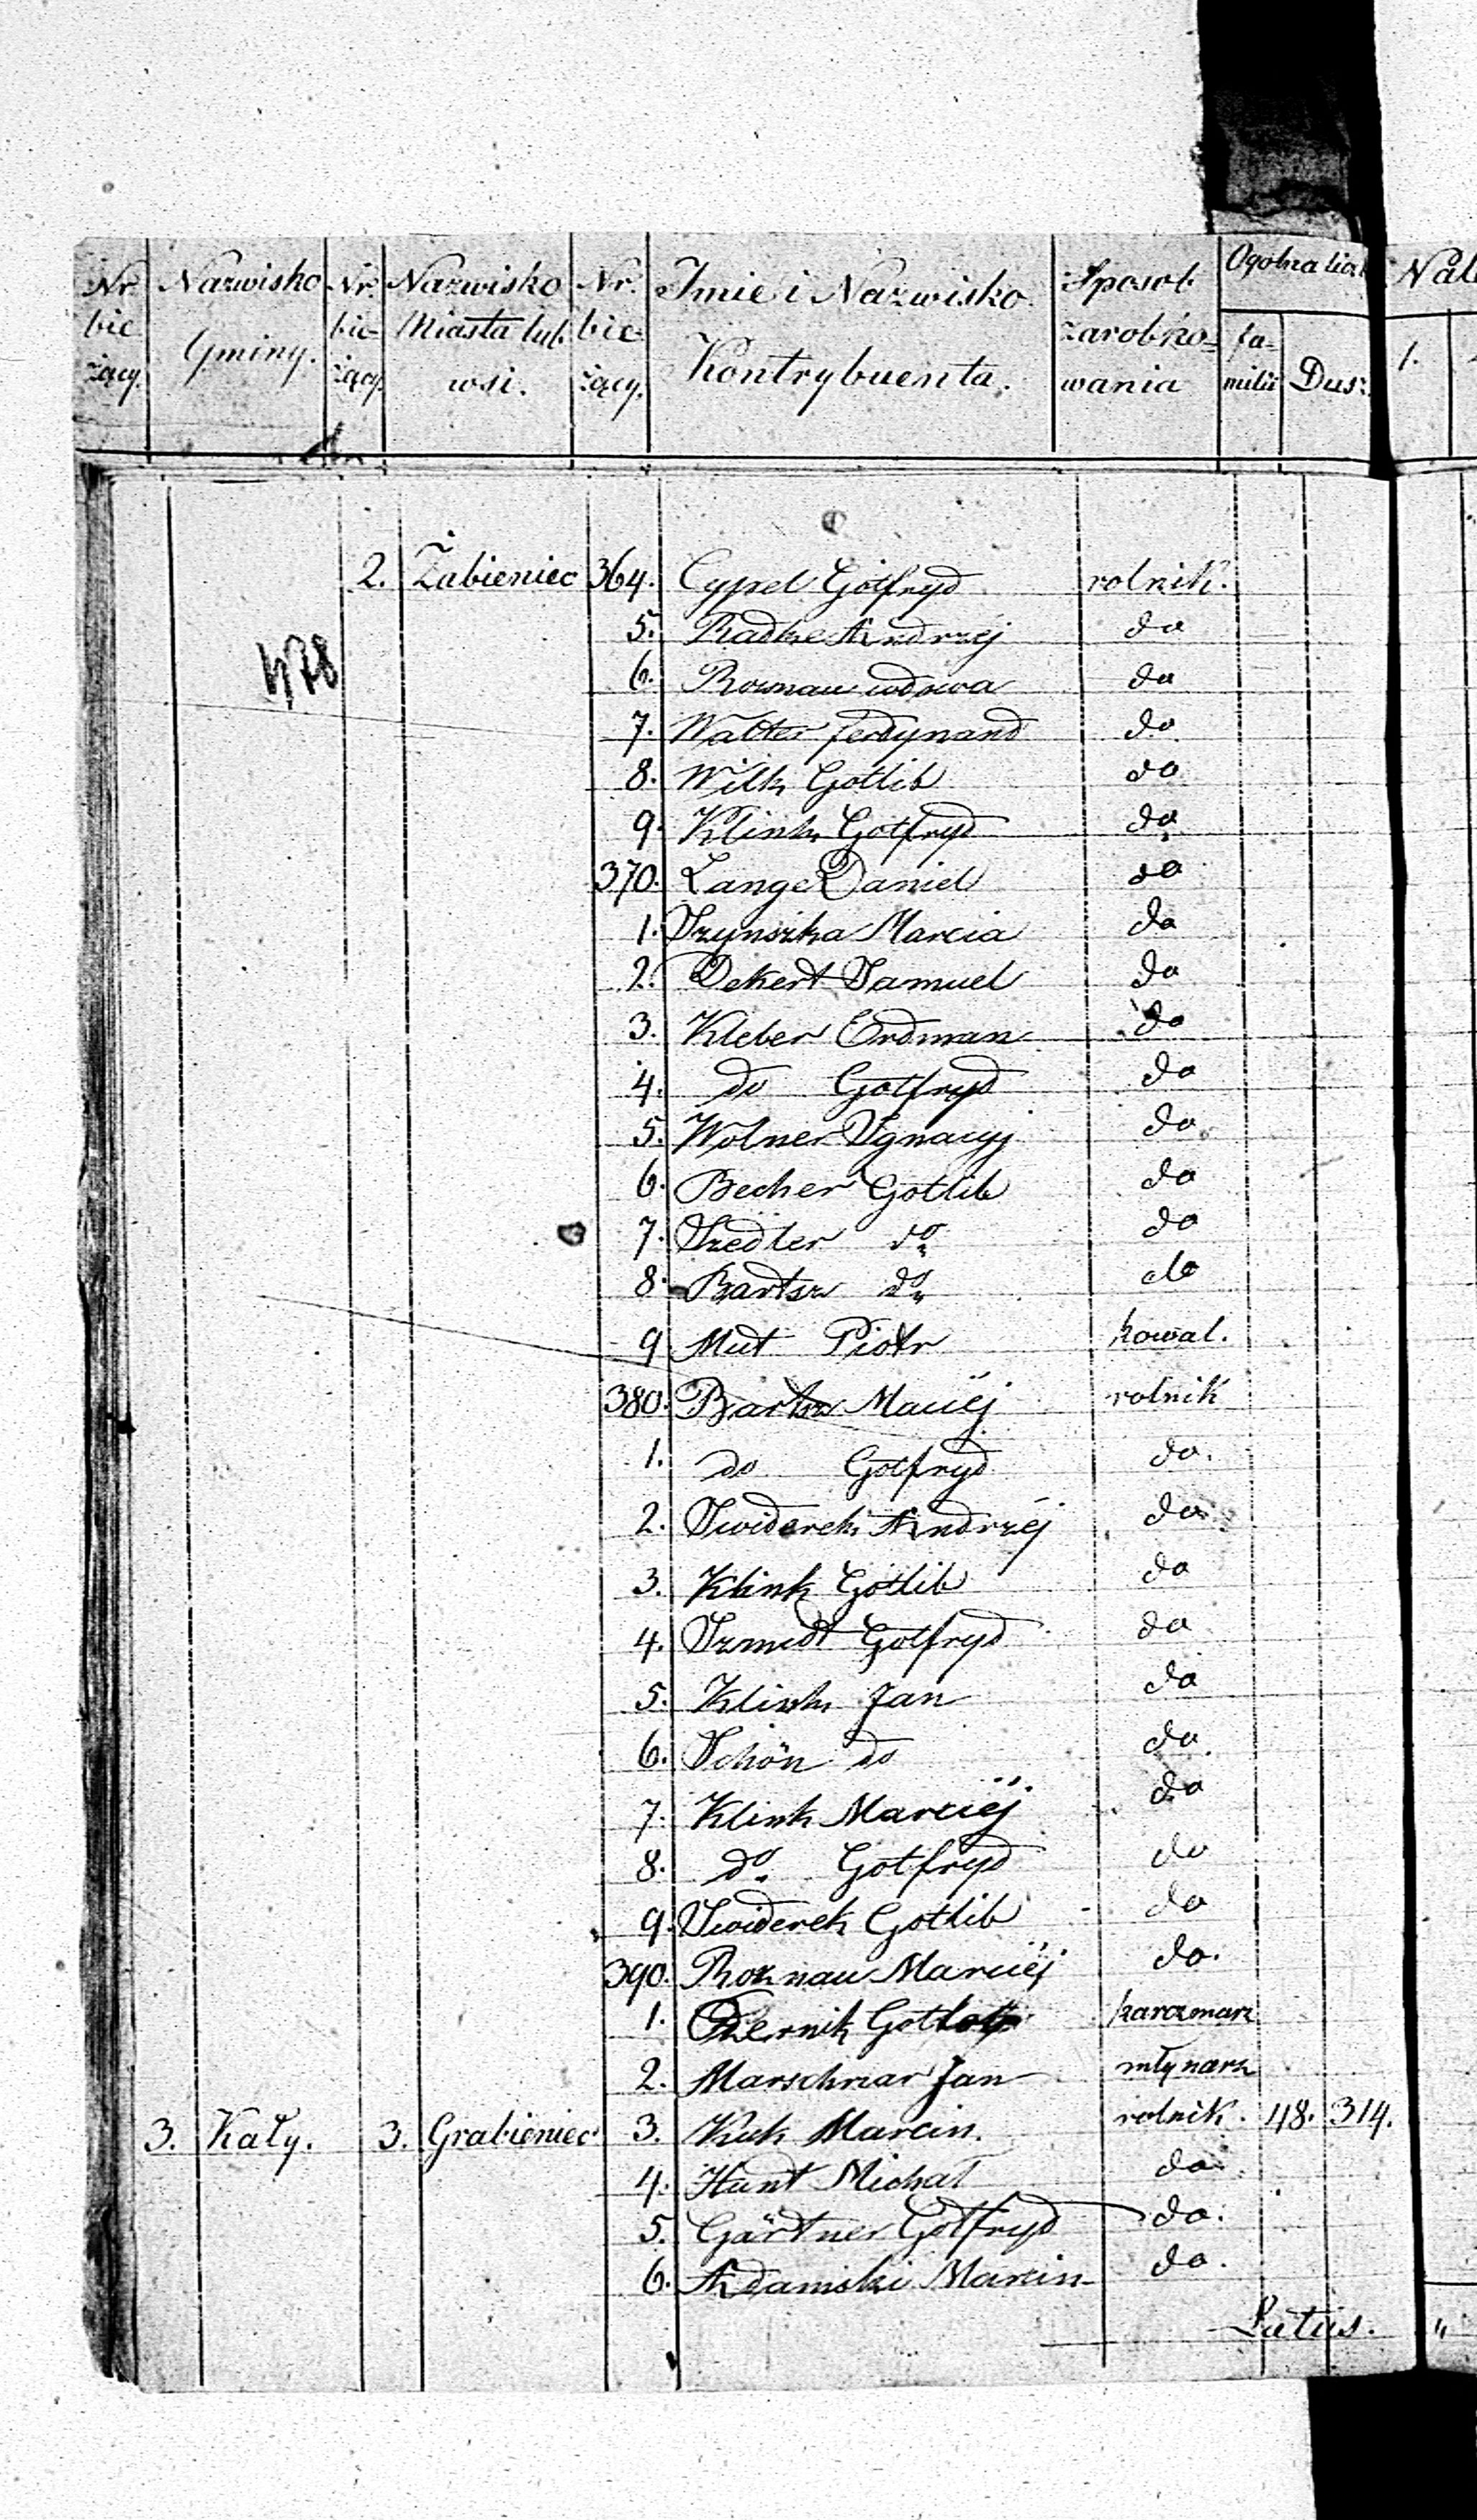 Nr bieżący. Nazwisko Gminy. Nr. bieżący. Nazwisko Miasta lub wsi. Nr. bieżący. Imie i Nazwisko Kontrybuenta. Sposob zarobkowania Ogolna familii Dusz 1.
478
2. Żabieniec 364. Cypel Gotfryd rolnik.
5. Radke Andrzéj do
6. Roznau wdowa do
7. Walter ferdynand do
8. Wilk Gotlib do
9. Klink Gotfryd do
370. Lange Daniel do
1. Szynszka Marcia do
2. Dekert Samuel do
3. Kleber Erdman do
4. do Gotfryd do
5. Wolner Ignacyj do
6. Becher Gotlib do
7. Szedler do do
8. Bartsz do do
9 Mut Piotr kowal.
380. Bartsz Maciéj rolnik
1. do Gotfryd do.
2. Swiderek Andrzéj do
3. Klink Gotlib do
4. Szmidt Gotfryd do
5. Klink Jan do
6. Schön do do
7. Klink Marciéj do
8. do. Gotfryd do
9. Swiderek Gotlib do
390. Roznau Marciéj do.
1. karczmarz
2. Marschnar Jan młynarz
3. Kały. 3. Grabieniec 3. Kuk Marcin. rolnik. 48. 314.
4. Hant Michał do
5. Gärtner Gotfryd do.
6. Adamski Marcin do.
Latus. "